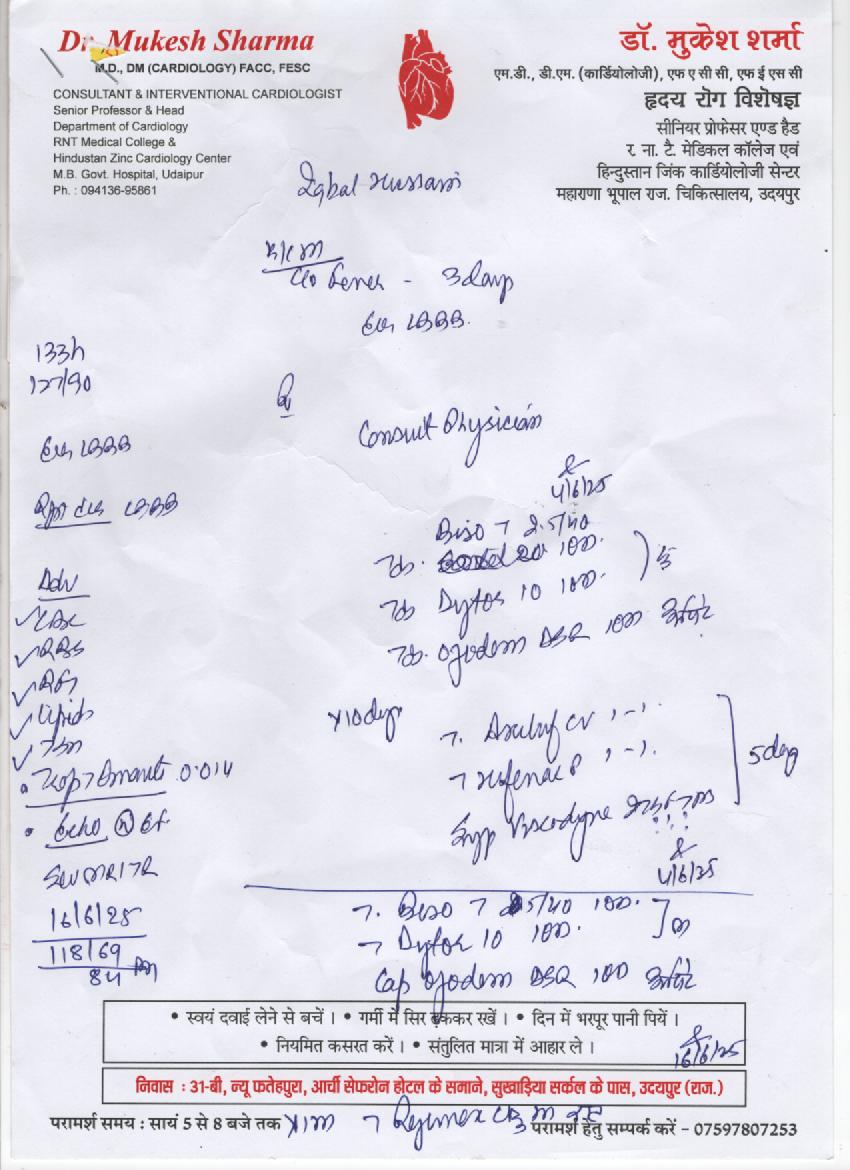 Dr. Mukesh Sharma
M.D., DM (CARDIOLOGY) FACC, FESC
CONSULTANT & INTERVENTIONAL CARDIOLOGIST
Senior Professor & Head
Department of Cardiology
RNT Medical College &
Hindustan Zinc Cardiology Center
M.B. Govt. Hospital, Udaipur
Ph. : 094136-95861
डॉ. मुकेश शर्मा
एम.डी., डी.एम. (कार्डियोलोजी), एफ ए सी सी, एफ ई एस सी
हृदय रोग विशेषज्ञ
सीनियर प्रोफेसर एण्ड हैड
र. ना. टै. मेडिकल कॉलेज एवं
हिन्दुस्तान जिंक कार्डियोलोजी सेन्टर
महाराणा भूपाल राज. चिकित्सालय, उदयपुर
Iqbal Hussain
c/o Fever - 3 days
ECG LBBB
133
127/90
ECG LBBB
ECG LBBB
Adv
CBC
RBS
RFT
Lipids
TSH
0.014
Echo (N) EF
16/6/25
118/69
84
Consult Physician
4/6/25
Biso T 2.5/40
Tab. 20 1OD.
Tab Dytor 10 1OD.
Tab. DSR 1OD
x10 days
CV 1-1
P 1-1.
5 days
Syp
4/6/25
T. Biso T 2.5/40 1OD.
T Dytor 10 1OD.
Cap DSR 1OD
• स्वयं दवाई लेने से बचें । • गर्मी में सिर ढ़ककर रखें । • दिन में भरपूर पानी पियें ।
• नियमित कसरत करें । • संतुलित मात्रा में आहार ले ।
16/6/25
निवास : 31-बी, न्यू फतेहपुरा, आर्ची सेफरोन होटल के समाने, सुखाड़िया सर्कल के पास, उदयपुर (राज.)
परामर्श समय : सायं 5 से 8 बजे तक x1m
परामर्श हेतु सम्पर्क करें - 07597807253